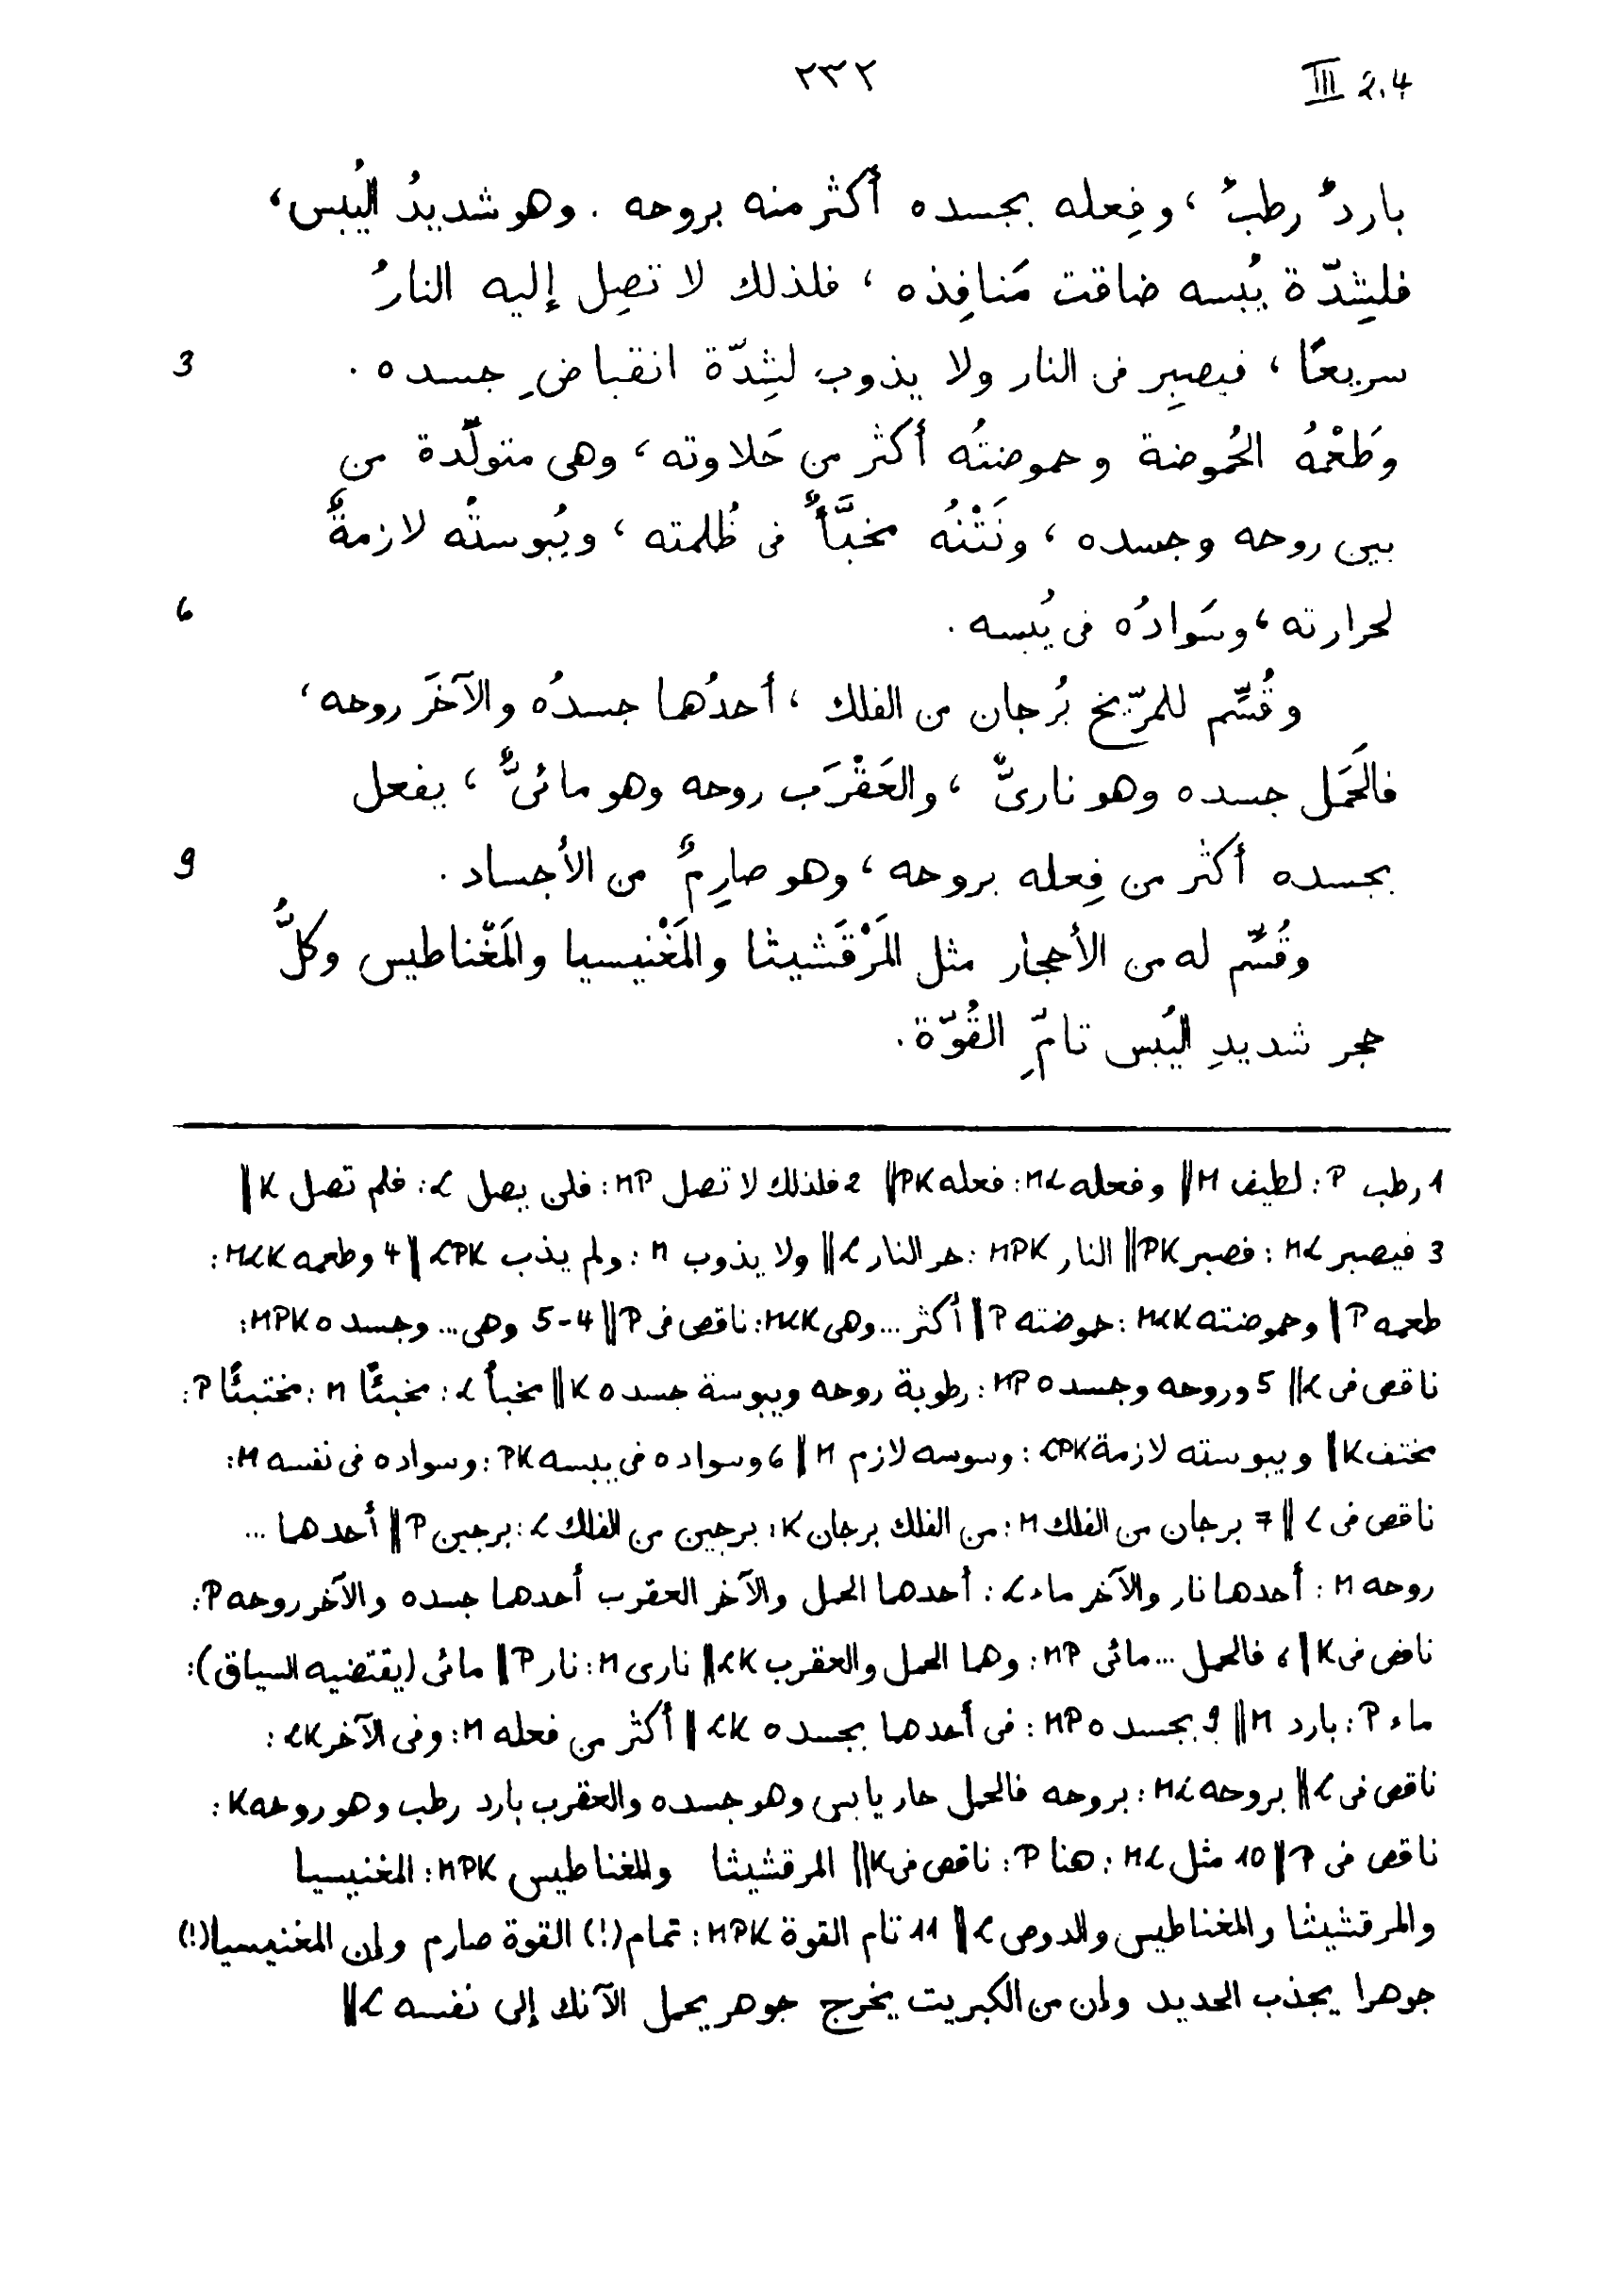 ٢٣٢
III 2.4
باردٌ رطبٌ، وفِعله بجسده أكثر منه بروحه. وهو شديدُ اليُبس،
فلشِدّة يُبسه ضاقت مَنافِذه، فلذلك لا تصِل إليه النارُ
سريعًا، فيصبِر فى النار ولا يذوب لشِدّة انقباضِ جسده. 3
وطَعْمُهُ الحُموضة وحموضتُه أكثر من حَلاوته، وهى متولّدة من
بين روحه وجسده، ونَتْنُهُ مخبَّأٌ فى ظُلمته، ويُبوستُه لازمةٌ
لحرارته، وسَوادُه فى يُبسه. 6
وقُسِّم للمرّيخ بُرجان من الفلك، أحدُهما جسدُه والآخَر روحه،
فالحَمَل جسده وهو نارىٌّ، والعَقْرَب روحه وهو مائىٌّ، يفعل
بجسده أكثر من فِعله بروحه، وهو صارِمٌ من الأجساد. 9
وقُسِّم له من الأحجار مثل المَرْقَشيثا والمَغْنيسيا والمَغْناطيس وكلُّ
حجر شديدِ اليُبس تامِّ القُوّة.
1 رطب P: لطيف M || وفعله ML: فعله PK || 2 فلذلك لا تصل MP: فلن يصل L: فلم تصل K ||
3 فيصبر ML: فصبر PK || النار MPK: حر النار L || ولا يذوب M: ولم يذب LPK || 4 وطعمه MLK:
طعمه P || وحموضته MLK: حموضته P || أكثر... وهى MLK: ناقص فى P || 4-5 وهى... وجسده MPK:
ناقص فى L || 5 وروحه وجسده MP: رطوبة روحه ويبوسة جسده K || مخبأ L: مخبئًا M: مختبئًا P:
مختف K || ويبوسته لازمة LPK: وسوسه لازم M || 6 وسواده فى يبسه PK: وسواده فى نفسه M:
ناقص فى L || 7 برجان من الفلك M: من الفلك برجان K: برجين من الفلك L: برجين P || أحدهما ...
روحه M: أحدهما نار والآخر ماء L: أحدهما الحمل والآخر العقرب أحدهما جسده والآخر روحه P:
ناقص فى K || فالحمل... مائى MP: وهما الحمل والعقرب LK || نارى M: نار P || مائى (يقتضيه السياق):
ماء P: بارد M || 9 بجسده MP: فى أحدهما بجسده LK || أكثر من فعله M: وفى الآخر LK:
ناقص فى L || بروحه ML: بروحه فالحمل حار يابس وهو جسده والعقرب بارد رطب وهو روحه K:
ناقص فى P || 10 مثل ML: هنا P: ناقص فى K || المرقشيثا والمغناطيس MPK: المغنيسيا
والمرقشيثا والمغناطيس والدوص L || 11 تام القوة MPK: تمام (!) القوة صارم وإن المغنيسيا (!)
جوهرا يجذب الحديد وإن من الكبريت يخرج جوهر يحمل الآنك إلى نفسه L ||